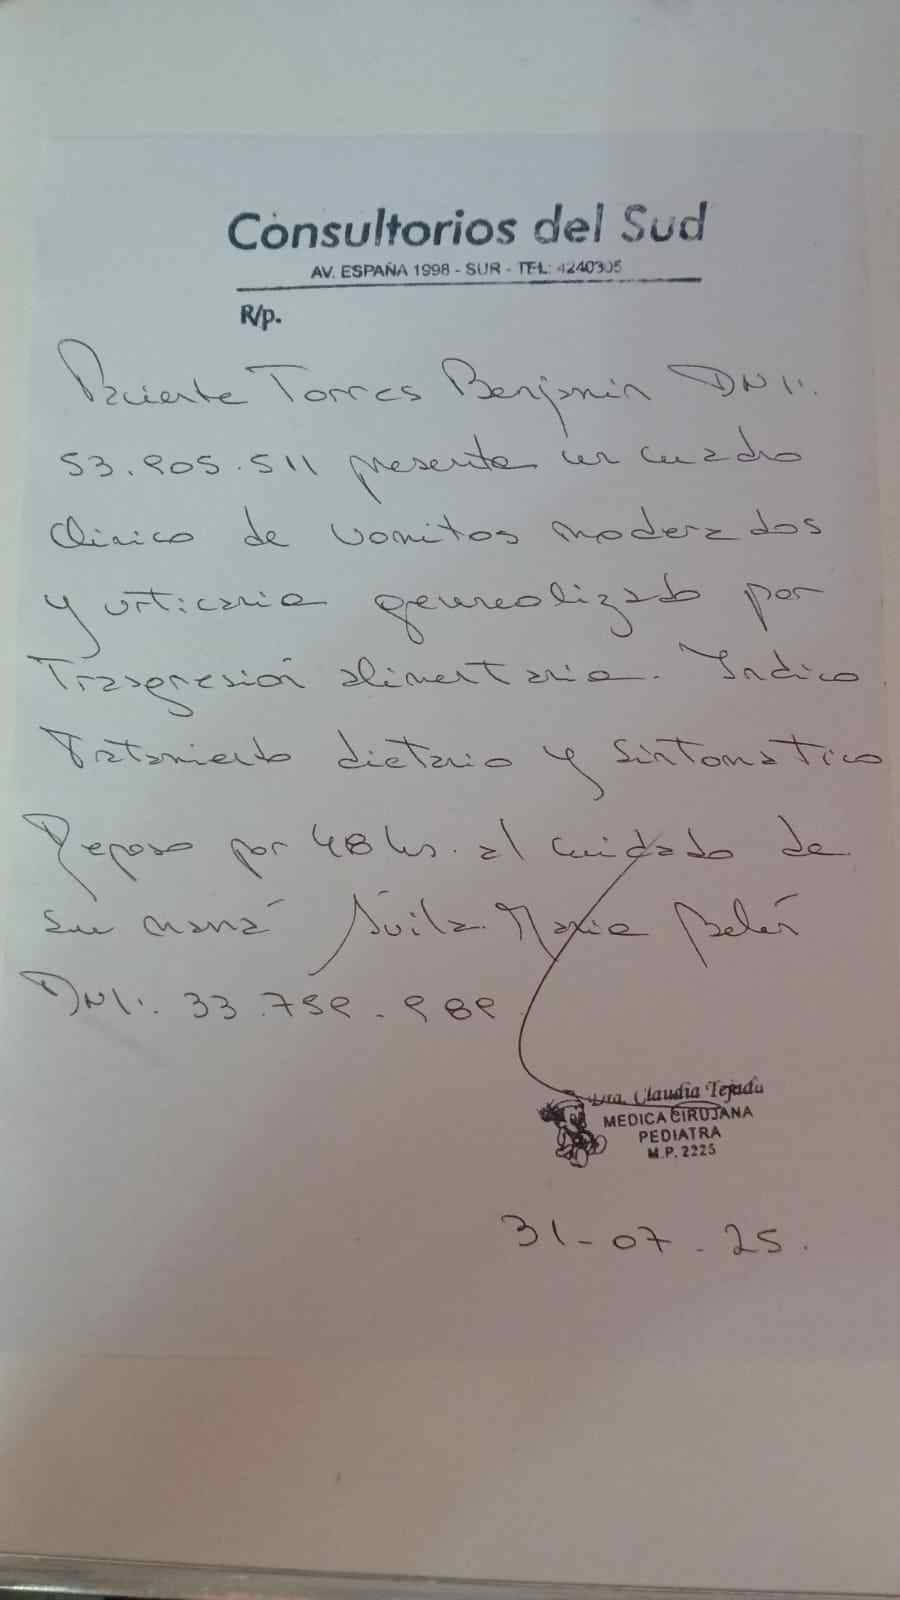 Consultorios del Sud
AV. ESPAÑA 1998 - SUR - TEL: 4240305
R/p.
Paciente Torres Benjamin DNI:
53.905.511 presenta un cuadro
clinico de vomitos moderados
y urticaria generealizado por
Trasgresión alimentaria. Indico
Tratamiento dietario y sintomatico
Reposo por 48 hs. al cuidado de
su mamá Ávila Maria Belén
DNI: 33.759.989
Dra. Claudia Tejada
MEDICA CIRUJANA
PEDIATRA
M.P. 2225
31-07-25.